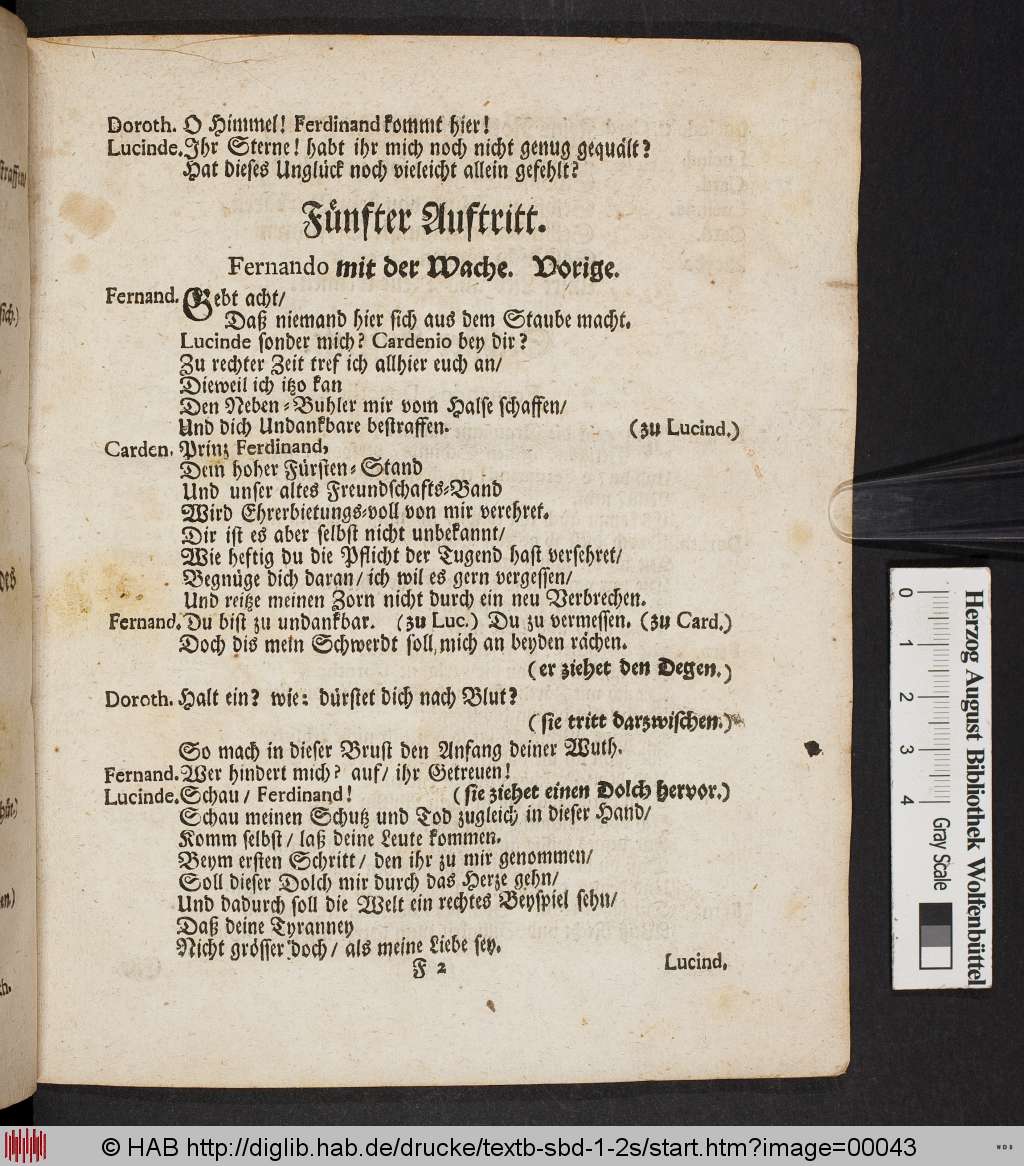 Doroth. O Himmel! Ferdinand kommt hier!
Lucinde. Ihr Sterne! habt ihr mich noch nicht genug gequält?
Hat dieses Unglück noch vieleicht allein gefehlt?
Fünfter Auftritt.
Fernando mit der Wache. Vorige.
Fernand. Gebt acht/
Daß niemand hier sich aus dem Staube macht.
Lucinde sonder mich? Cardenio bey dir?
Zu rechter Zeit tref ich allhier euch an/
Dieweil ich itzo kan
Den Neben-Buhler mir vom Halse schaffen/
Und dich Undankbare bestraffen. (zu Lucind.)
Carden. Prinz Ferdinand,
Dein hoher Fürsten-Stand
Und unser altes Freundschafts-Band
Wird Ehrerbietungs-voll von mir verehret.
Dir ist es aber selbst nicht unbekannt/
Wie heftig du die Pflicht der Tugend hast versehret/
Begnüge dich daran/ ich wil es gern vergessen/
Und reitze meinen Zorn nicht durch ein neu Verbrechen.
Fernand. Du bist zu undankbar. (zu Luc.) Du zu vermessen. (zu Card.)
Doch dis mein Schwerdt soll mich an beyden rächen.
(er ziehet den Degen.)
Doroth. Halt ein? wie: dürstet dich nach Blut?
(sie tritt darzwischen.)
So mach in dieser Brust den Anfang deiner Wuth.
Fernand. Wer hindert mich? auf/ ihr Getreuen!
Lucinde. Schau/ Ferdinand! (sie ziehet einen Dolch hervor.)
Schau meinen Schutz und Tod zugleich in dieser Hand/
Komm selbst/ laß deine Leute kommen.
Beym ersten Schritt/ den ihr zu mir genommen/
Soll dieser Dolch mir durch das Herze gehn/
Und dadurch soll die Welt ein rechtes Beyspiel sehn/
Daß deine Tyranney
Nicht grösser doch/ als meine Liebe sey.
F 2 Lucind.
0 1 2 3 4
Herzog August Bibliothek Wolfenbüttel
Gray Scale
© HAB http://diglib.hab.de/drucke/textb-sbd-1-2s/start.htm?image=00043